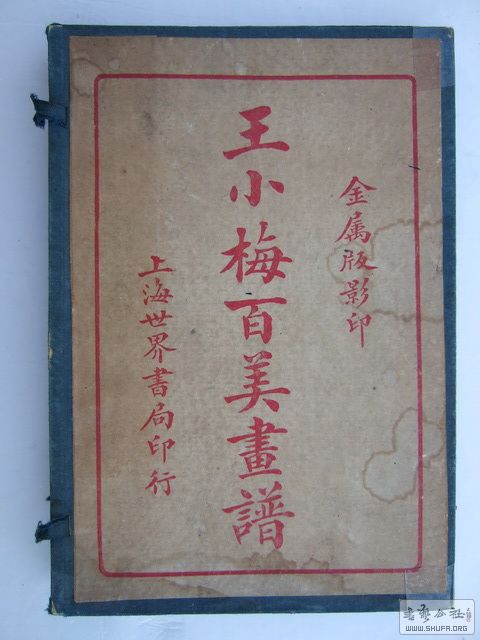 金属版影印
王小梅百美畫譜
上海世界書局印行
書藝公社
WWW.SHUFA.ORG